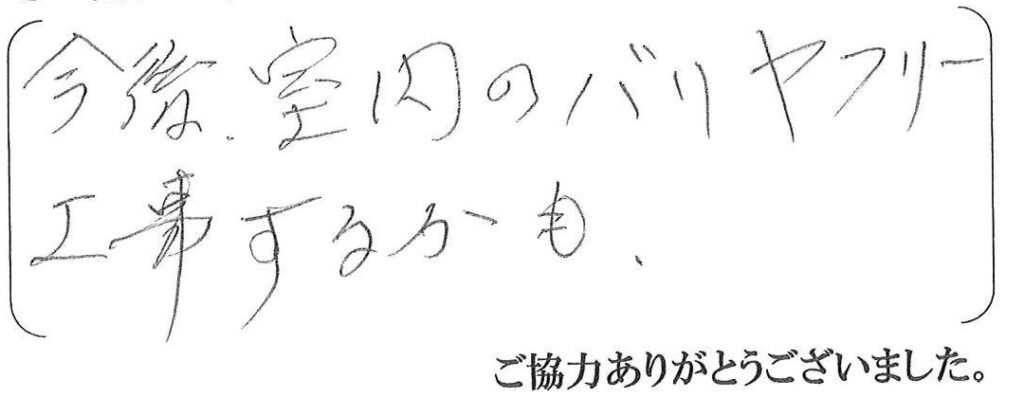 今後、室内のバリヤフリー
工事するかも、
ご協力ありがとうございました。